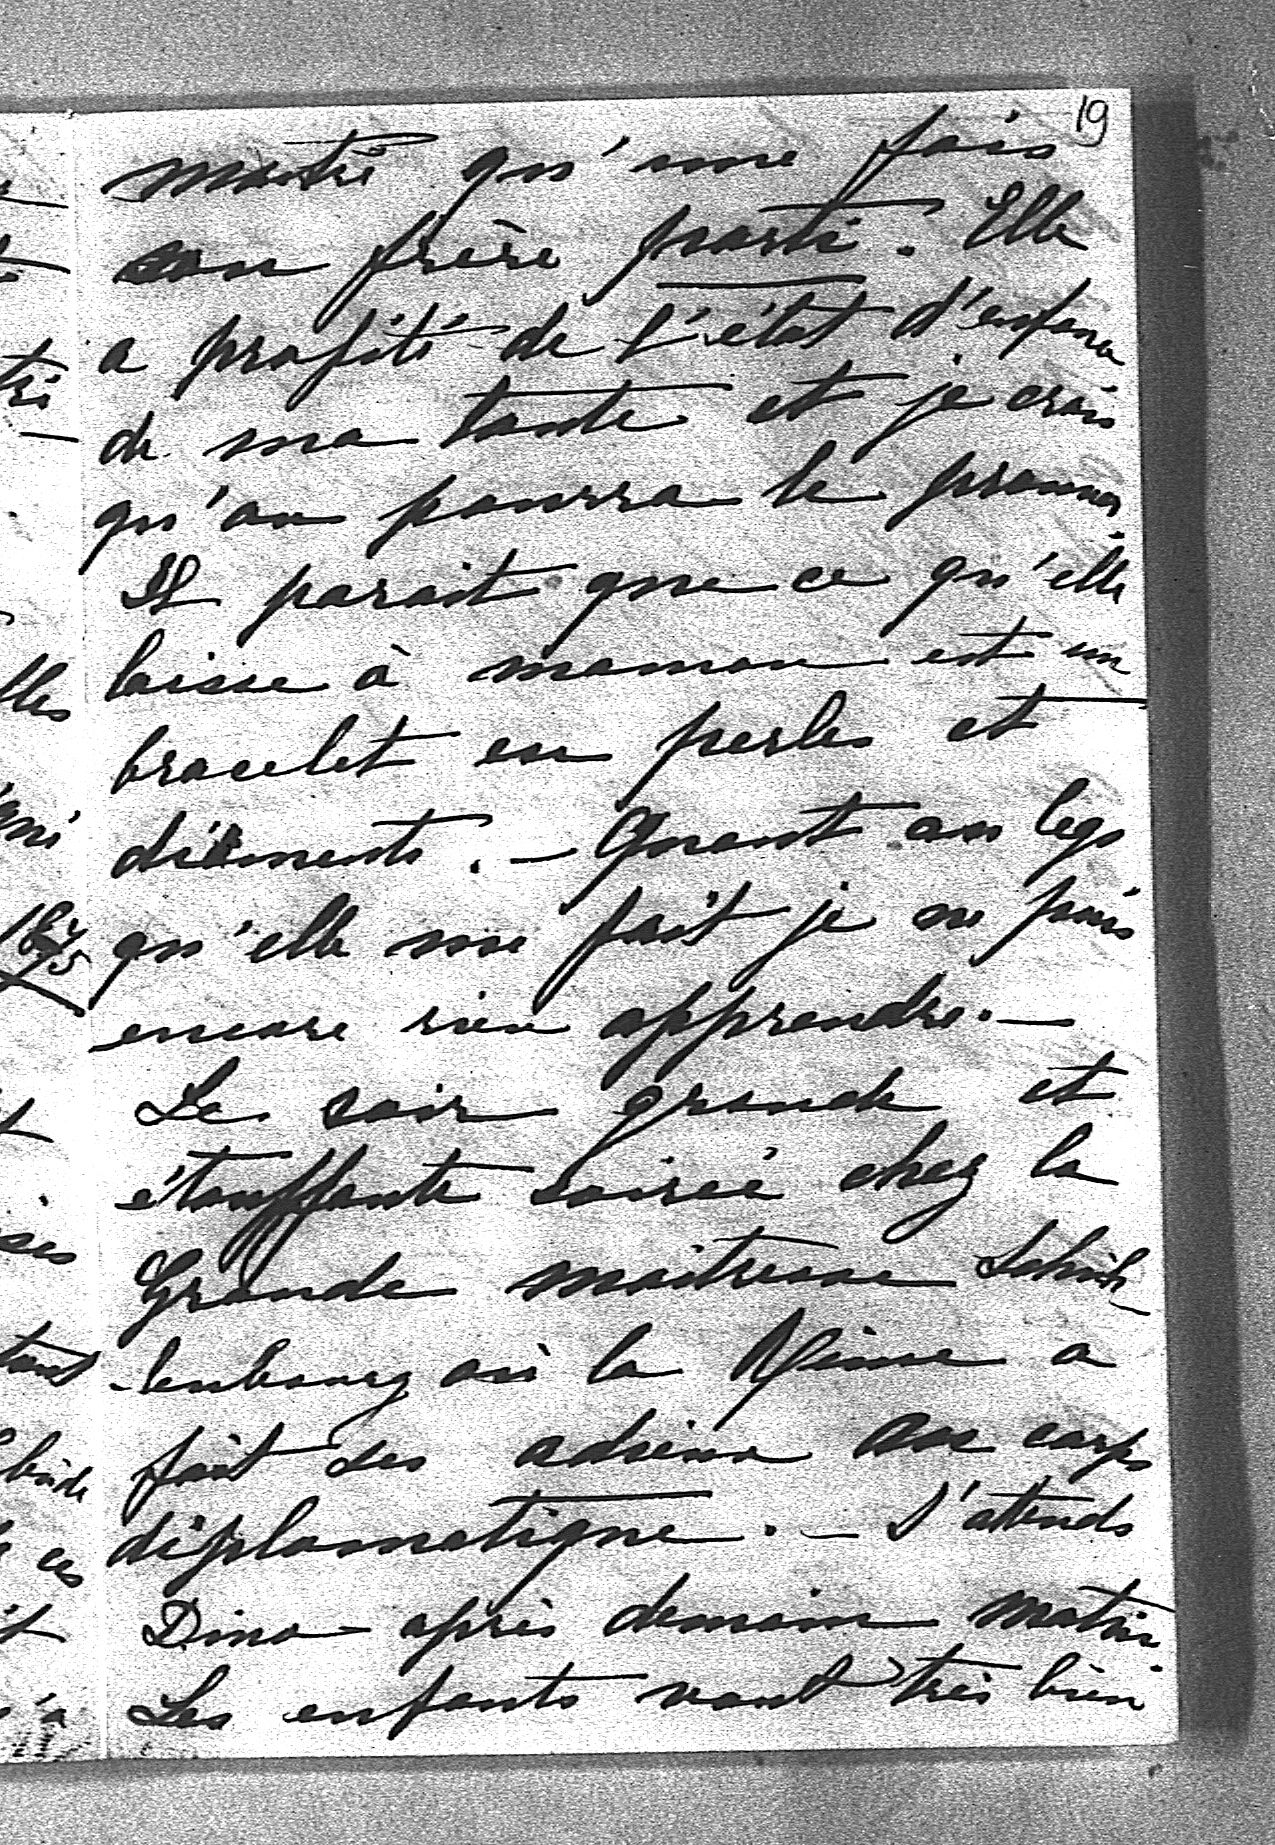 19
montré qu'une fois
son frère parti. Elle
a profité de l'état d'enfance
de ma tante et je crois
qu'on pourra le prouver
Il parait que ce qu'elle
laisse à maman est un
bracelet en perles et
diaments. — Quant au legs
qu'elle me fait je ne puis
encore rien apprendre. —
Le soir grande et
étouffante soirée chez la
Grande maitresse
où la Reine a
fait ses adieux au corps
diplomatique. — J'attends
Dina après demain matin.
Les enfants vont très bien